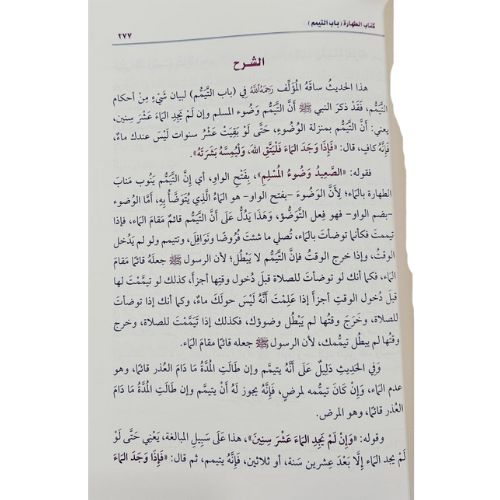 كتاب الطهارة (باب التيمم)
٢٧٧
الشرح
هذا الحديثُ ساقَهُ المُؤلِّف رَحِمَهُ اللهُ في (باب التيمُّم) لبيان شَيْءٍ مِنْ أحكام
التيمُّم، فَقَدْ ذكرَ النبي ﷺ أَنَّ التيمُّم وَضُوء المسلم وإن لَمْ يَجِدِ المَاءَ عَشْرَ سِنِين،
يعني: أَنَّ التيمُّم بمنزلة الوُضُوءِ، حَتَّى لَوْ بَقِيتَ عَشْرَ سنوات لَيْسَ عندك ماءٌ،
فَإِنَّهُ كافٍ، قال: «فَإِذَا وَجَدَ المَاءَ فَلْيَتَّقِ اللهَ، وَلْيُمِسَّهُ بَشَرَتَهُ».
فقوله: «الصَّعِيدُ وَضُوءُ المُسْلِمِ»، بِفَتْحِ الواو، أي إِنَّ التيمُّم يَنوب مَنابَ
الطهارة بالمَاءِ؛ لأَنَّ الوَضُوءَ -بفتح الواو- هو المَاءُ الَّذِي يُتَوَضَّأُ بِهِ، أمَّا الوُضوء
-بضم الواو- فهو فِعل التَّوَضُّؤِ، وَهَذَا يَدُلُّ عَلَى أَنَّ التيمُّم قائمٌ مَقَامَ المَاءِ، فإذا
تيممتَ فكأنما توضأتَ بالمَاءِ، تُصلي ما شئتَ فُروضًا ونَوَافِلَ، وتتيمم ولو لم يَدْخُلِ
الوقتُ، وإذا خرج الوقتُ فإنَّ التيمُّم لا يَبْطُل؛ لأن الرسول ﷺ جعلَهُ قائمًا مَقامَ
المَاءِ، فما أنك لو توضأتَ للصلاة قبلَ دخولِ وقتِها أجزأَ، كذلك لو تيمَّمْتَ لها
قبلَ دُخول الوقتِ أجزأَ إذا عَلِمْتَ أَنَّهُ لَيْسَ حولَكَ ماءٌ، وكما أنك إذا توضأتَ
للصلاة، وخَرَجَ وقتُها لم يَبْطُل وضوؤك، فكذلك إذا تَيَمَّمْتَ للصلاة، وخرج
وقتُها لم يبطُل تيمُّمك، لأن الرسول ﷺ جعله قائمًا مقامَ المَاءِ.
وَفِي الحَدِيثِ دَلِيلٌ عَلَى أَنَّهُ يتيمَّم وإن طَالَتِ المُدَّةُ مَا دَامَ العُذر قائمًا، وهو
عدم المَاءِ، وَإِنْ كَانَ تيمُّمه لمرضٍ، فَإِنَّهُ يجوز لَهُ أَنْ يتيمَّم وإن طَالَتِ المُدَّةُ مَا دَامَ
العُذر قائمًا، وهو المرض.
وقوله: «وَإِنْ لَمْ يَجِدِ المَاءَ عَشْرَ سِنِينَ»، هذا عَلَى سَبِيلِ المبالغة، يَعْنِي حَتَّى لَوْ
لَمْ يَجِدِ المَاءَ إِلَّا بَعْدَ عِشرين سَنة، أو ثلاثين، فَإِنَّهُ يتيمم، ثم قال: «فَإِذَا وَجَدَ المَاءَ